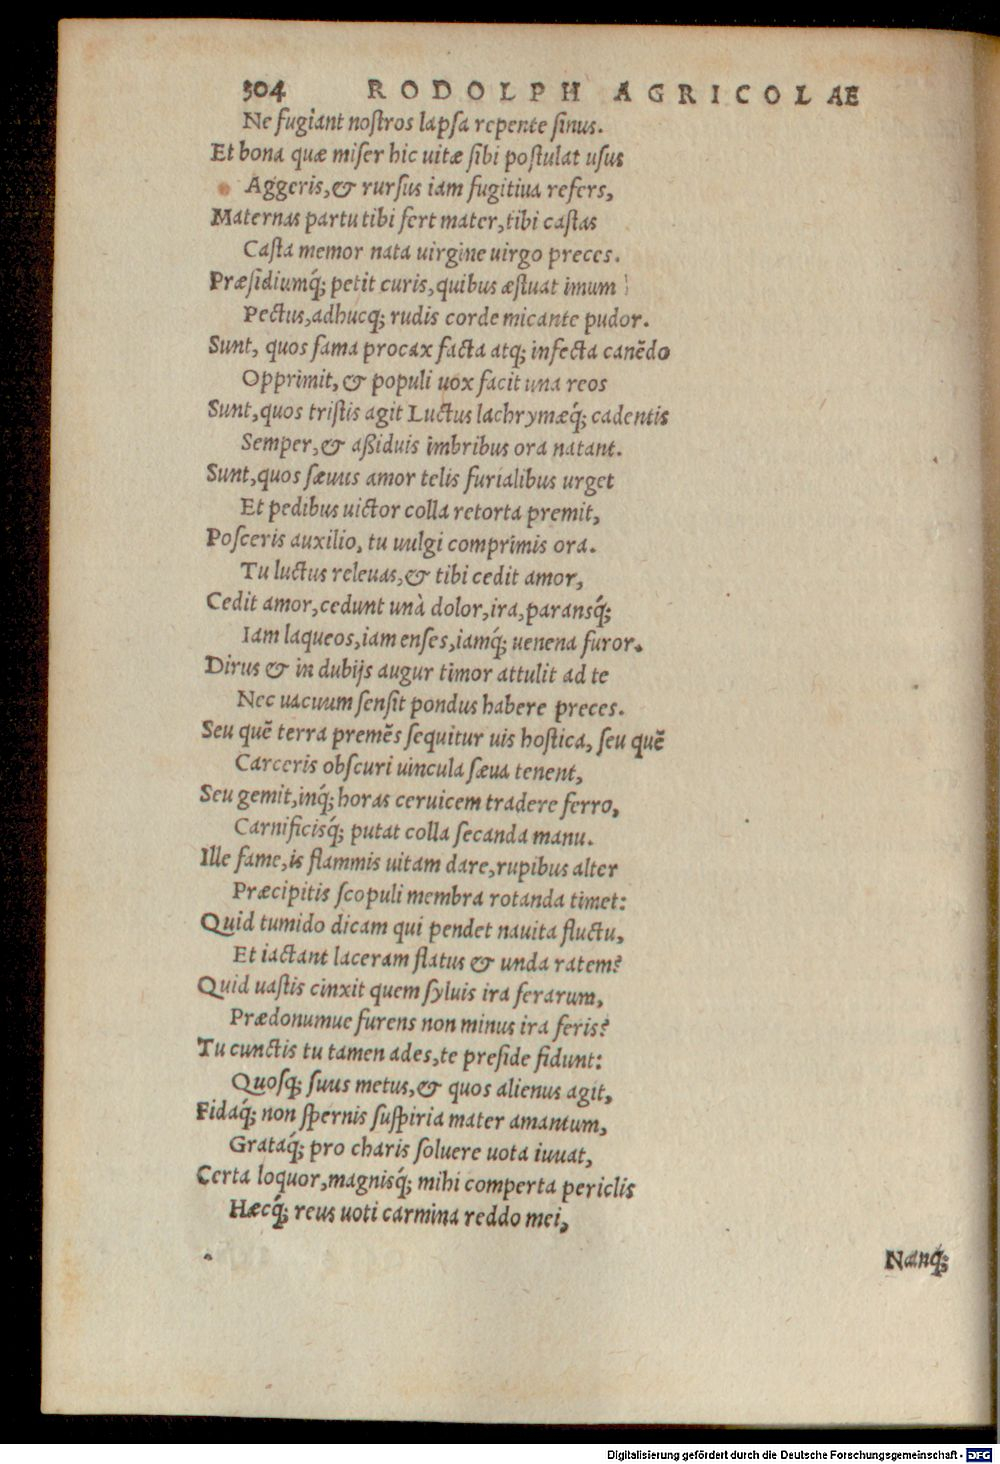 304 RODOLPH AGRICOLAE
Ne fugiant noſtros lapſa repente ſinus.
Et bona quæ miſer hic uitæ ſibi poſtulat uſus
Aggeris, & rurſus iam fugitiua refers,
Maternas partu tibi fert mater, tibi caſtas
Caſta memor nata uirgine uirgo preces.
Præſidiumq́; petit curis, quibus æſtuat imum
Pectus, adhucq; rudis corde micante pudor.
Sunt, quos fama procax facta atq; infecta canẽdo
Opprimit, & populi uox facit una reos
Sunt, quos triſtis agit Luctus lachrymæq́; cadentis
Semper, & aßiduis imbribus ora natant.
Sunt, quos ſæuus amor telis furialibus urget
Et pedibus uictor colla retorta premit,
Poſceris auxilio, tu uulgi comprimis ora.
Tu luctus releuas, & tibi cedit amor,
Cedit amor, cedunt unà dolor, ira, paransq́;
Iam laqueos, iam enſes, iamq́; uenena furor.
Dirus & in dubijs augur timor attulit ad te
Nec uacuum ſenſit pondus habere preces.
Seu quẽ terra premẽs ſequitur uis hoſtica, ſeu quẽ
Carceris obſcuri uincula ſæua tenent,
Seu gemit, inq́; horas ceruicem tradere ferro,
Carnificisq́; putat colla ſecanda manu.
Ille fame, is flammis uitam dare, rupibus alter
Præcipitis ſcopuli membra rotanda timet:
Quid tumido dicam qui pendet nauita fluctu,
Et iactant laceram flatus & unda ratem?
Quid uaſtis cinxit quem ſyluis ira ferarum,
Prædonumue furens non minus ira feris?
Tu cunctis tu tamen ades, te preſide fidunt:
Quoſq; ſuus metus, & quos alienus agit,
Fidaq́; non ſpernis ſuſpiria mater amantum,
Grataq́; pro charis ſoluere uota iuuat,
Certa loquor, magnisq́; mihi comperta periclis
Hæcq́; reus uoti carmina reddo mei,
Nanq;
Digitalisierung gefördert durch die Deutsche Forschungsgemeinschaft - DFG